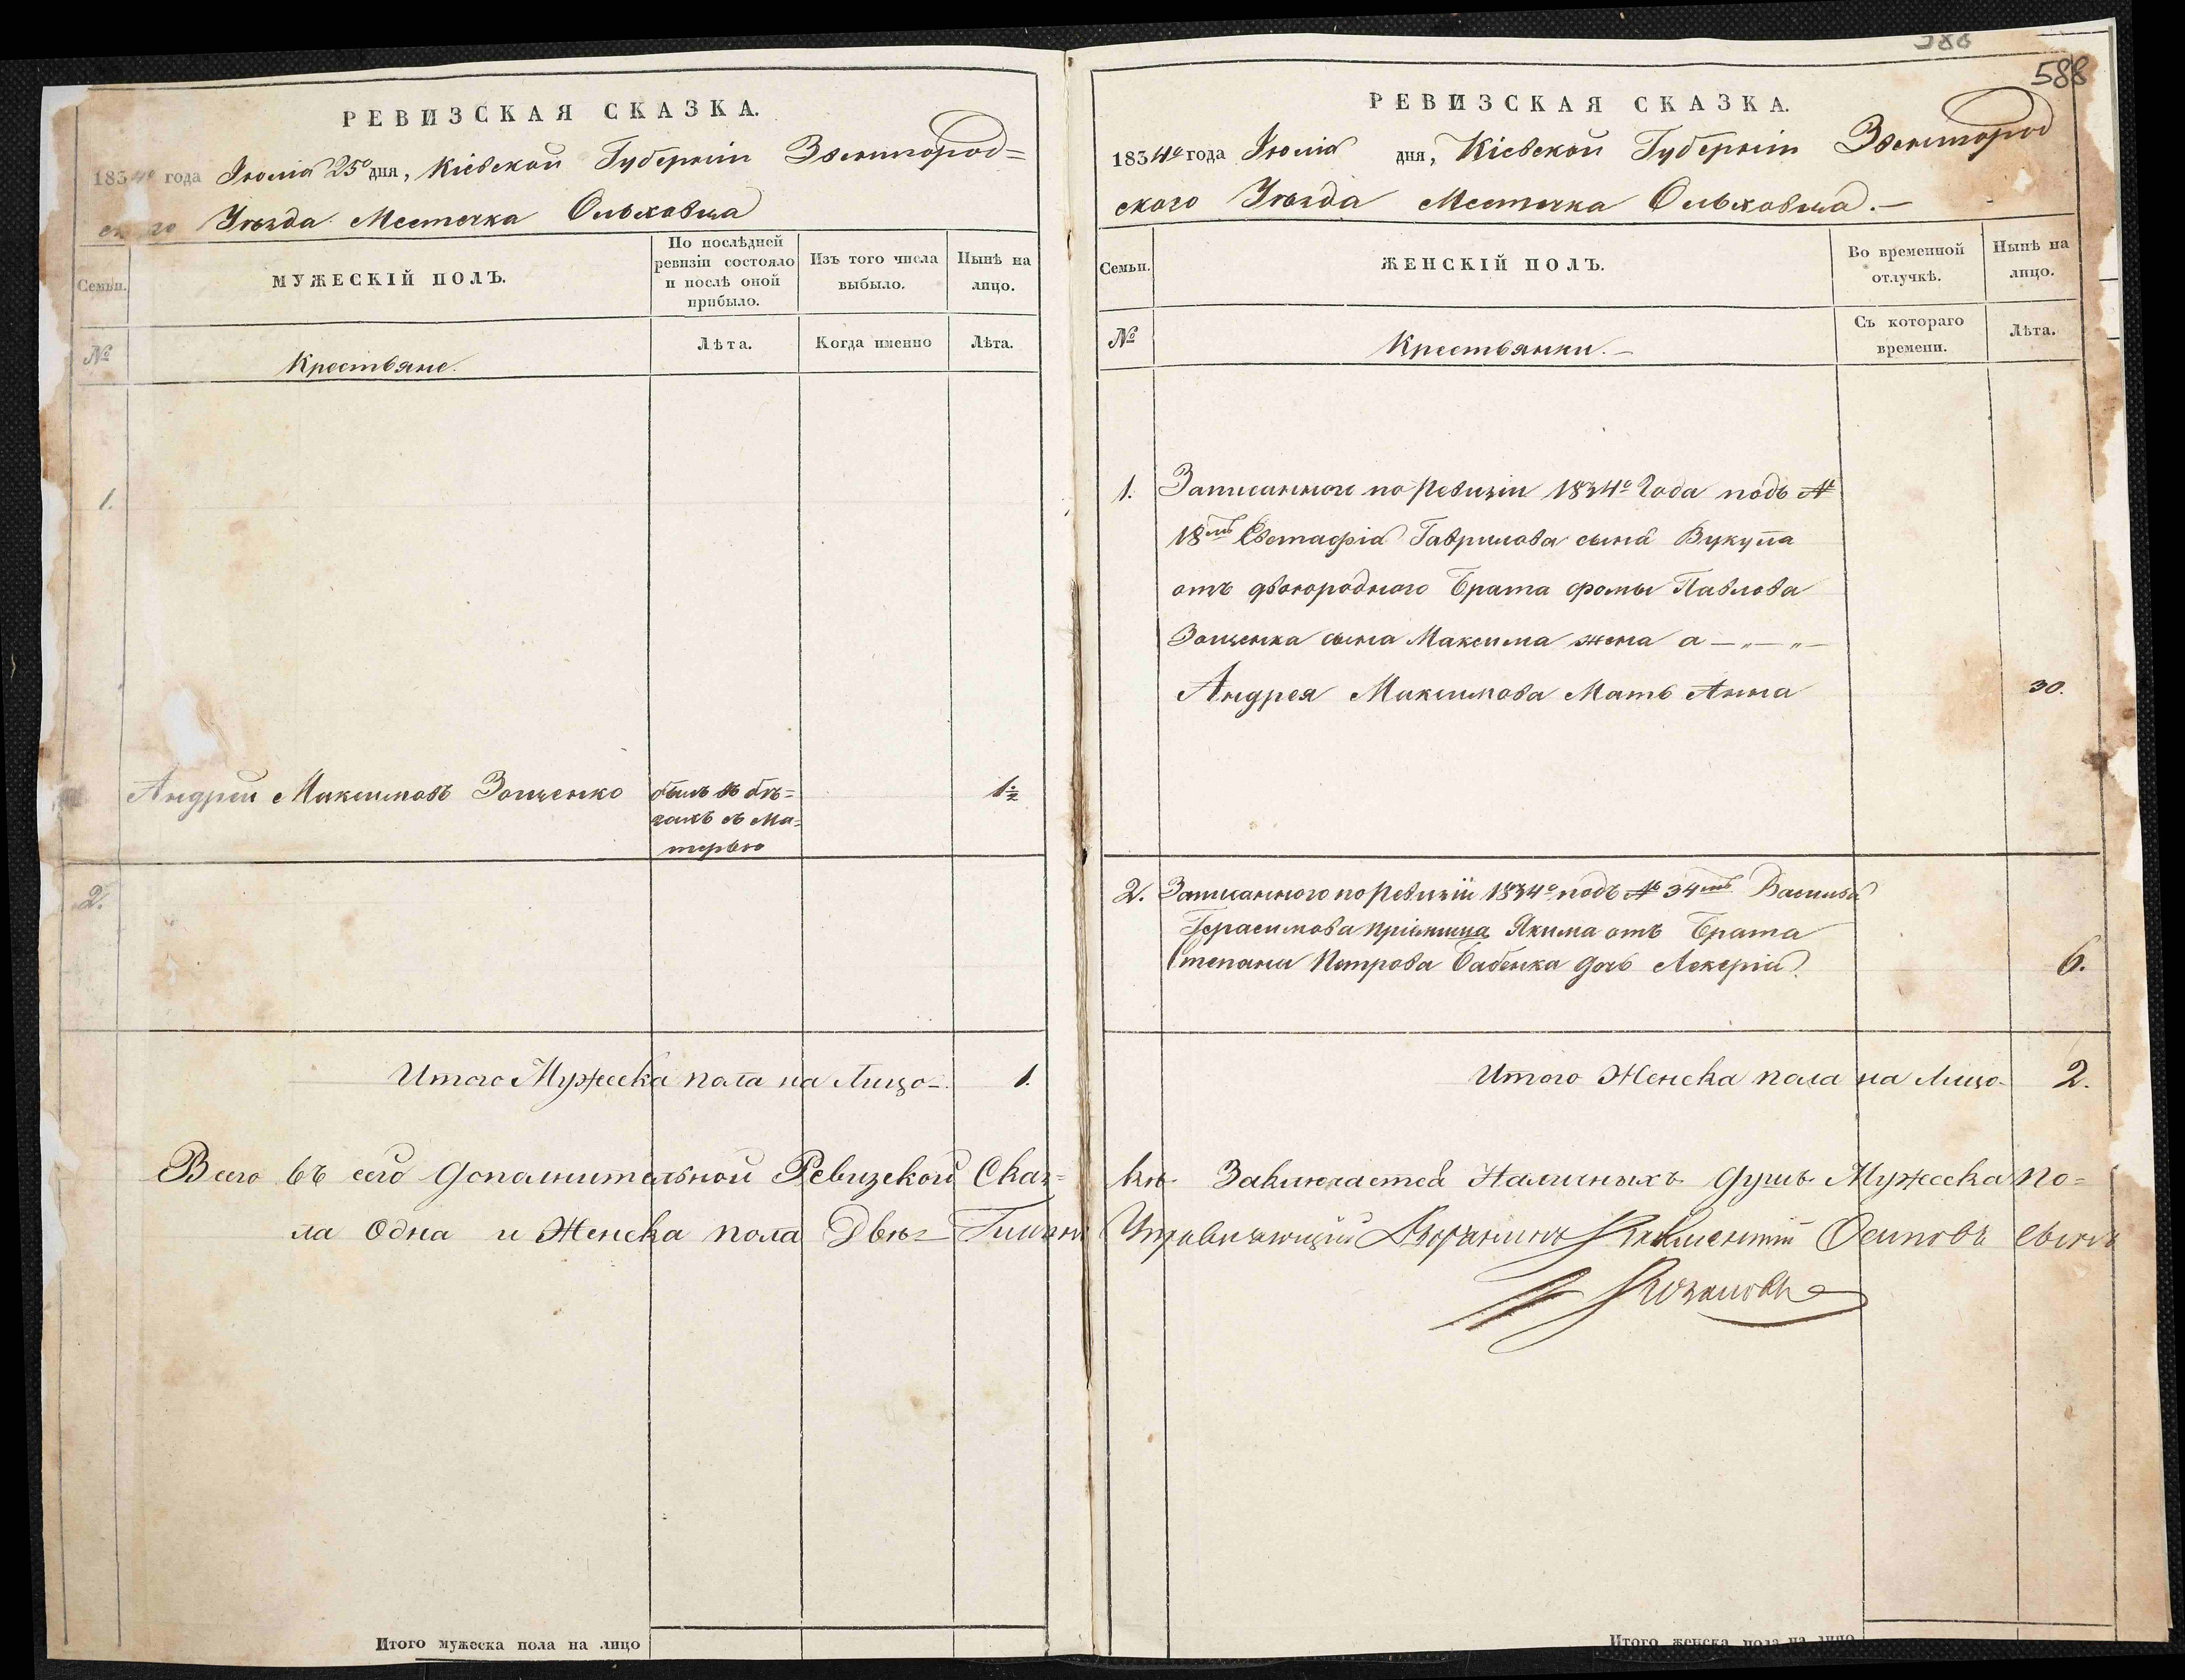 РЕВИЗСКАЯ СКАЗКА.
1834го года Іюлія 25го дня, Кіевской Губерніи Звенигород=
ского Уѣзда Местечка Ольховца
Семьи.
МУЖЕСКІЙ ПОЛЪ.
По послѣдней ревизіи состояло и послѣ оной прибыло.
Изъ того числа выбыло.
Нынѣ на лицо.
№
Крестьяне.
Лѣта.
Когда именно
Лѣта.
1.
Андрей Максимовъ Зощенко
былъ въ бѣ=
гахъ съ Ма=
терью
1½
2.
Итого Мужеска пола на Лицо 1.
Всего въ сей дополнительной Ревизской Сказ=
ла Одна и Женска пола Двѣ
Итого мужеска пола на лицо
588
РЕВИЗСКАЯ СКАЗКА.
1834го года Іюлія дня, Кіевской Губерніи Звенигород
ского Уѣзда Местечка Ольховца.
Семьи.
ЖЕНСКІЙ ПОЛЪ.
Во временной отлучкѣ.
Нынѣ на лицо.
№
Крестьянки.
Съ котораго времени.
Лѣта.
1. Записанного по Ревизіи 1834го Года подъ №
18мъ Евстафія Гаврилова сына Вукула
отъ двоюродного Брата Фомы Павлова
Зощенка сына Максима жена а
Андрея Максимова Мать Анна 30.
2. Записанного по Ревизіи 1834го подъ № 34мъ Василья
Герасимова пріемыша Якима отъ Брата
Степана Петрова Бабенка дочь Лекерія 6.
Итого Женска пола на Лицо 2.
кѣ Заключается Наличныхъ душъ Мужеска по=
Управляющій Дворянинъ Климентій Осиповъ сынъ
Итого женска пола на лицо